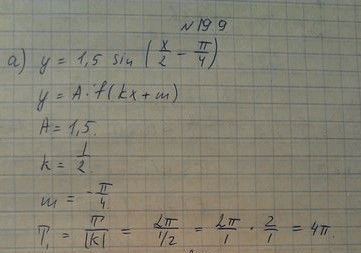 №19.9
а) y = 1,5 sin (x/2 - π/4)
y = A · f(kx+m)
A = 1,5.
k = 1/2.
m = -π/4.
T₁ = T/|k| = 2π/1/2 = 2π/1 · 2/1 = 4π.